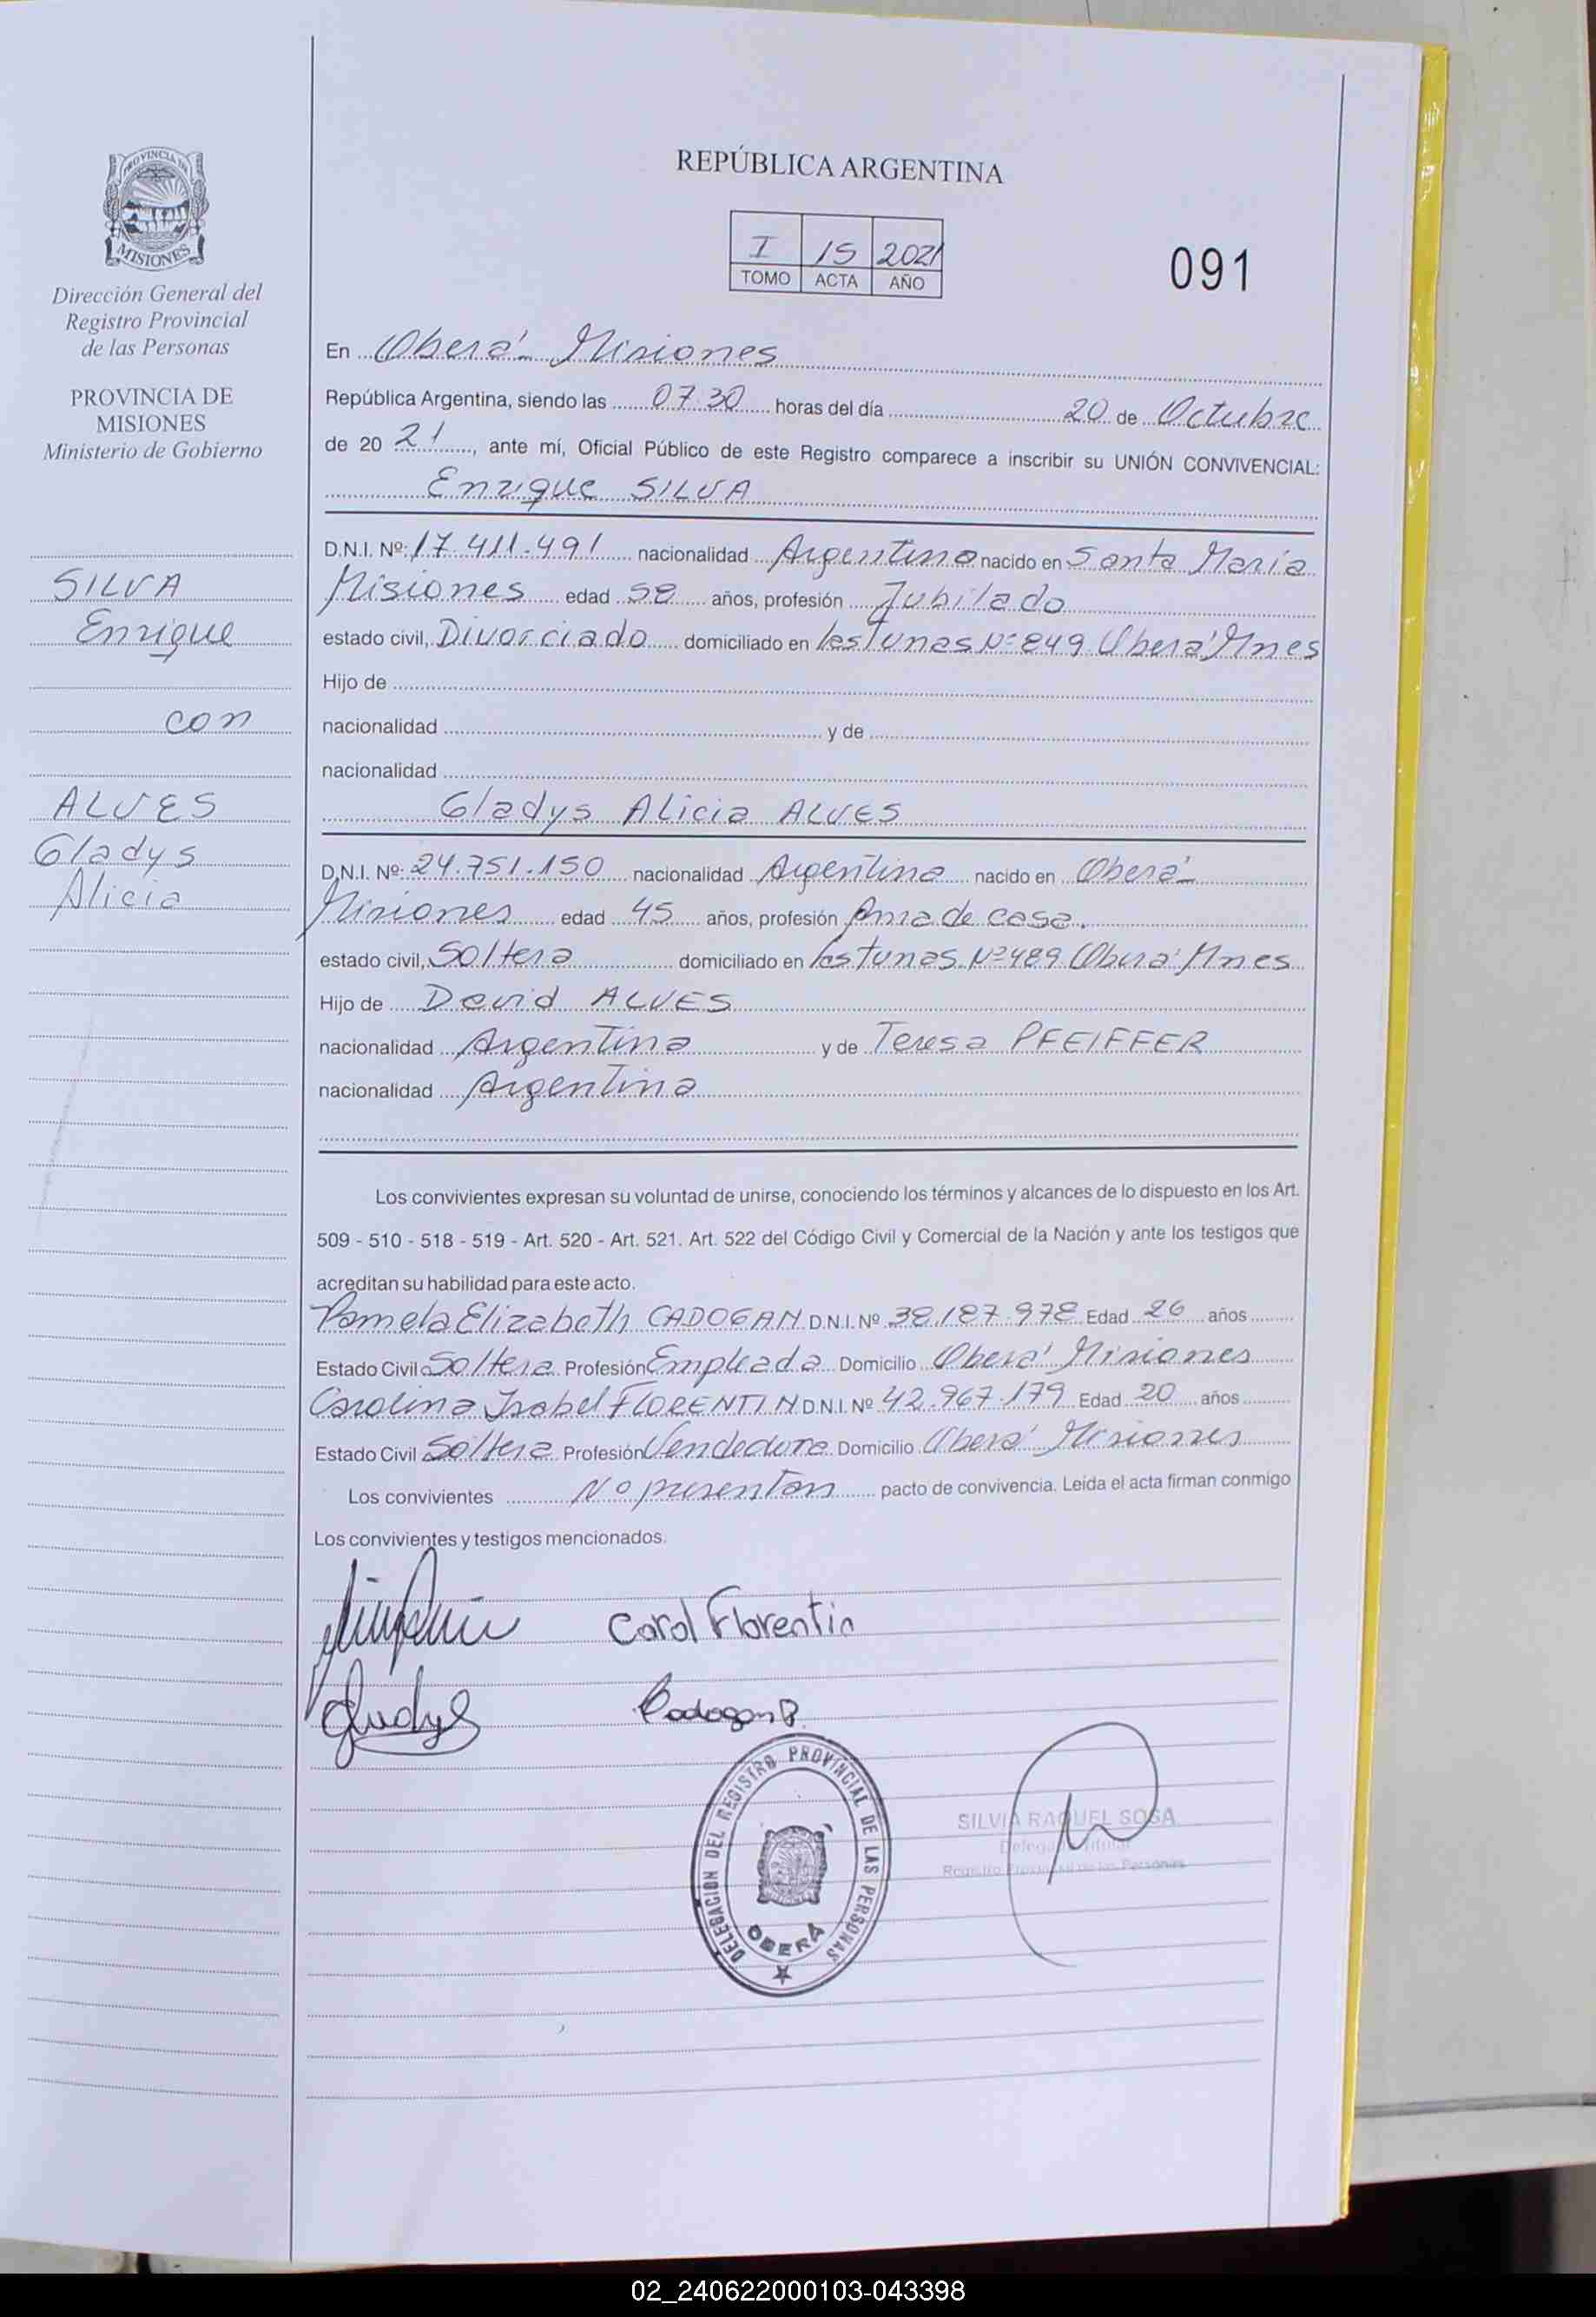 PROVINCIA DE
MISIONES
Dirección General del
Registro Provincial
de las Personas
PROVINCIA DE
MISIONES
Ministerio de Gobierno
SILVA
Enrique
con
ALVES
Gladys
Alicia
REPÚBLICA ARGENTINA
I 15 2021
TOMO ACTA AÑO
091
En Oberá Misiones
República Argentina, siendo las 07.30 horas del día 20 de Octubre
de 20 21, ante mí, Oficial Público de este Registro comparece a inscribir su UNIÓN CONVIVENCIAL:
Enrique SILVA
D.N.I. Nº: 17.411.491 nacionalidad Argentino nacido en Santa María
Misiones edad 58 años, profesión Jubilado
estado civil, Divorciado domiciliado en las Tunas Nº 849 Oberá Mnes
Hijo de
nacionalidad y de
nacionalidad
Gladys Alicia ALVES
D.N.I. Nº: 24.751.150 nacionalidad Argentina nacido en Oberá
Misiones edad 45 años, profesión Ama de casa.
estado civil, Soltera domiciliado en las Tunas Nº 489 Oberá Mnes
Hijo de David ALVES
nacionalidad Argentina y de Teresa PFEIFFER
nacionalidad Argentina
Los convivientes expresan su voluntad de unirse, conociendo los términos y alcances de lo dispuesto en los Art.
509 - 510 - 518 - 519 - Art. 520 - Art. 521. Art. 522 del Código Civil y Comercial de la Nación y ante los testigos que
acreditan su habilidad para este acto.
Pamela Elizabeth CADOGAN D.N.I. Nº 38.187.978 Edad 26 años
Estado Civil Soltera Profesión Empleada Domicilio Oberá Misiones
Carolina Isabel FLORENTIN D.N.I. Nº 42.967.179 Edad 20 años
Estado Civil Soltera Profesión Vendedora Domicilio Oberá Misiones
Los convivientes No presentan pacto de convivencia. Leída el acta firman conmigo
Los convivientes y testigos mencionados.
Carol Florentin
Gladys
Cadogan P.
DELEGACION DEL REGISTRO PROVINCIAL DE LAS PERSONAS
OBERÁ
SILVIA RAQUEL SOSA
Delegada Titular
Registro Provincial de las Personas
02_240622000103-043398